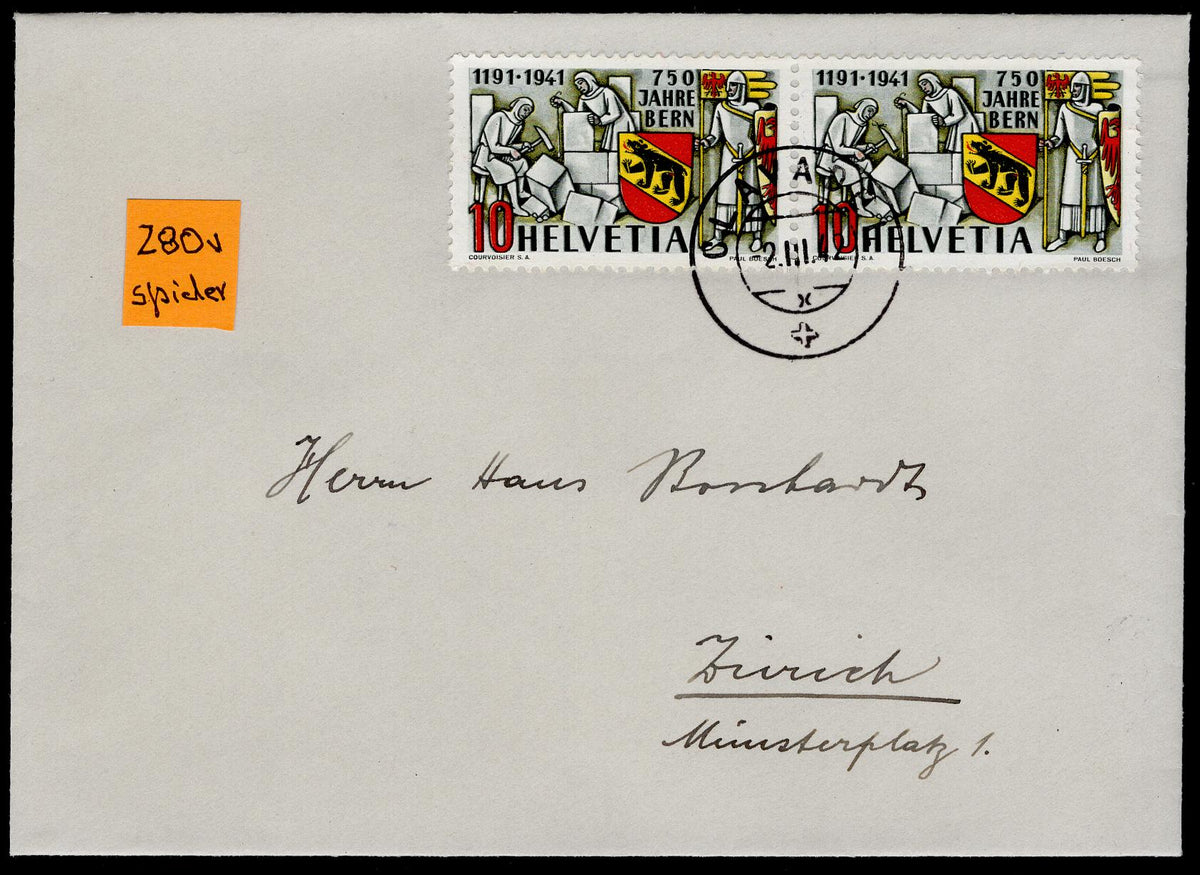 1191·1941
750
JAHRE
BERN
10 HELVETIA
COURVOISIER S.A.
PAUL BOESCH
1191·1941
750
JAHRE
BERN
10 HELVETIA
COURVOISIER S.A.
PAUL BOESCH
2.III
X
280v
spider
Herrn Hans Bosshardt
Zürich
Münsterplatz 1.